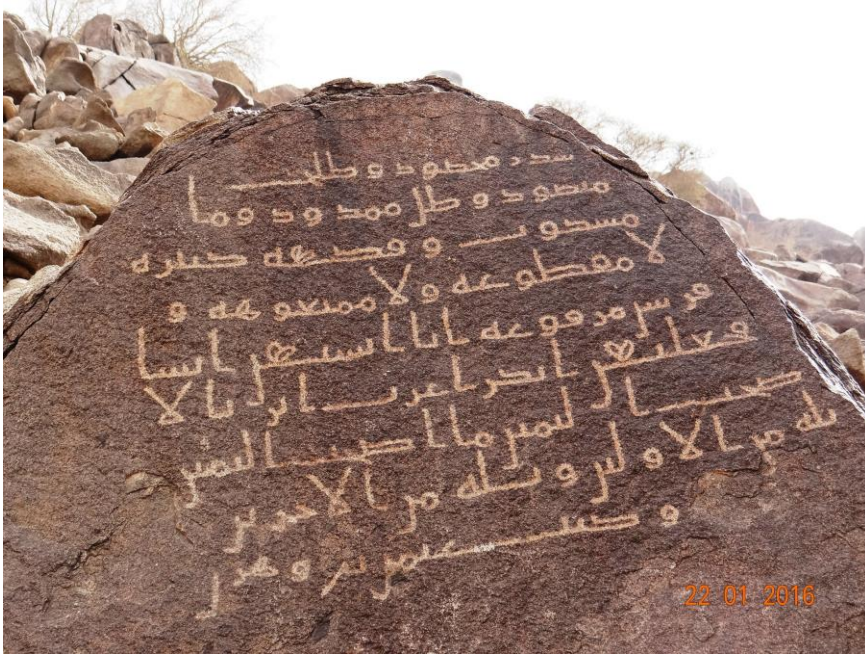 سدر مخضود وطلح
منضود وظل ممدود وما
مسكوب وفكهه كثيره
لا مقطوعه ولا ممنوعه و
فرش مرفوعه انا انشنهن انشا
فجعلنهن ابكرا عربا اترابا لا
صحب اليمين ما اصحب اليمين
ثله من الاولين وثله من الاخرين
وكتب بن
22 01 2016